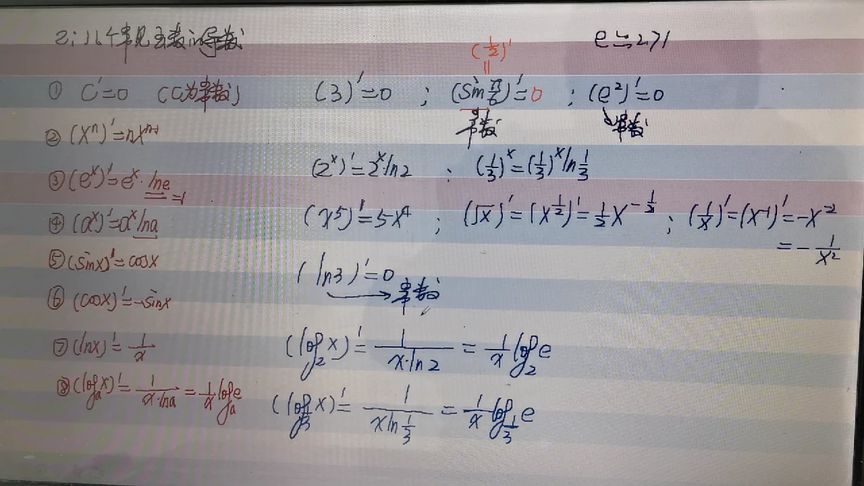 2; 几个常见函数的导数
e≈2.71
(1/2)'
=
① C'=0 (C为常数)
(3)'=0 ; (sin π/6)'=0 ; (e²)'=0
常数 常数
② (xⁿ)'=nxⁿ⁻¹
(2ˣ)'=2ˣln2 ; (1/3)ˣ=(1/3)ˣln 1/3
③ (eˣ)'=eˣ·lne =1
④ (aˣ)'=aˣlna
(x⁵)'=5x⁴ ; (√x)'=(x^{1/2})'=1/2 x^{-1/2} ; (1/x)'=(x⁻¹)'=-x⁻²
=-1/x²
⑤ (sinx)'=cosx
(ln3)'=0
常数
⑥ (cosx)'=-sinx
⑦ (lnx)'=1/x
(log₂x)'=1/(x·ln2)=1/x log₂e
⑧ (logₐx)'=1/(x·lna)=1/x logₐe
(log_{1/3}x)'=1/(x ln 1/3)=1/x log_{1/3}e